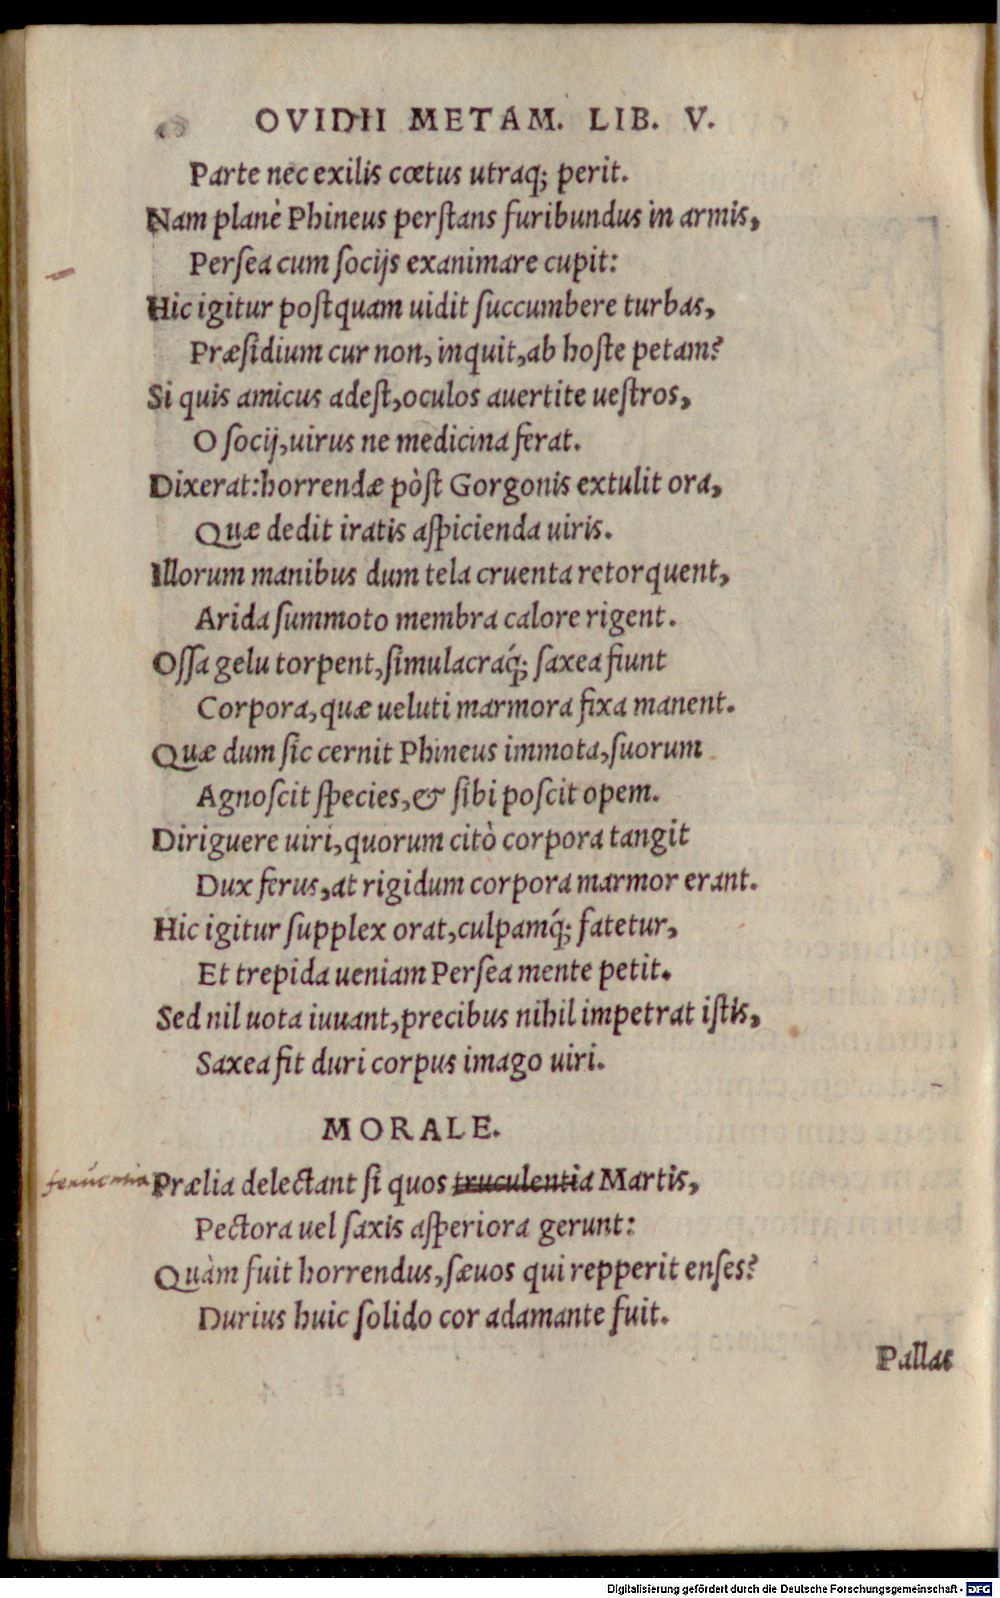 OVIDII METAM. LIB. V.
Parte nec exilis cœtus utraq; perit.
Nam planè Phineus perſtans furibundus in armis,
Perſea cum ſocijs exanimare cupit:
Hic igitur poſtquam uidit ſuccumbere turbas,
Præſidium cur non, inquit, ab hoſte petam?
Si quis amicus adeſt, oculos auertite ueſtros,
O ſocij, uirus ne medicina ferat.
Dixerat: horrendæ pòſt Gorgonis extulit ora,
Quæ dedit iratis aſpicienda uiris.
Illorum manibus dum tela cruenta retorquent,
Arida ſummoto membra calore rigent.
Oſſa gelu torpent, ſimulacraq́; ſaxea fiunt
Corpora, quæ ueluti marmora fixa manent.
Quæ dum ſic cernit Phineus immota, ſuorum
Agnoſcit ſpecies, & ſibi poſcit opem.
Diriguere uiri, quorum citò corpora tangit
Dux ferus, at rigidum corpora marmor erant.
Hic igitur ſupplex orat, culpamq́; fatetur,
Et trepida ueniam Perſea mente petit.
Sed nil uota iuuant, precibus nihil impetrat iſtis,
Saxea fit duri corpus imago uiri.
MORALE.
Prælia delectant ſi quos truculentia Martis,
Pectora uel ſaxis aſperiora gerunt:
Quàm fuit horrendus, ſæuos qui repperit enſes?
Durius huic ſolido cor adamante fuit.
Pallas
Digitalisierung gefördert durch die Deutsche Forschungsgemeinschaft - DFG